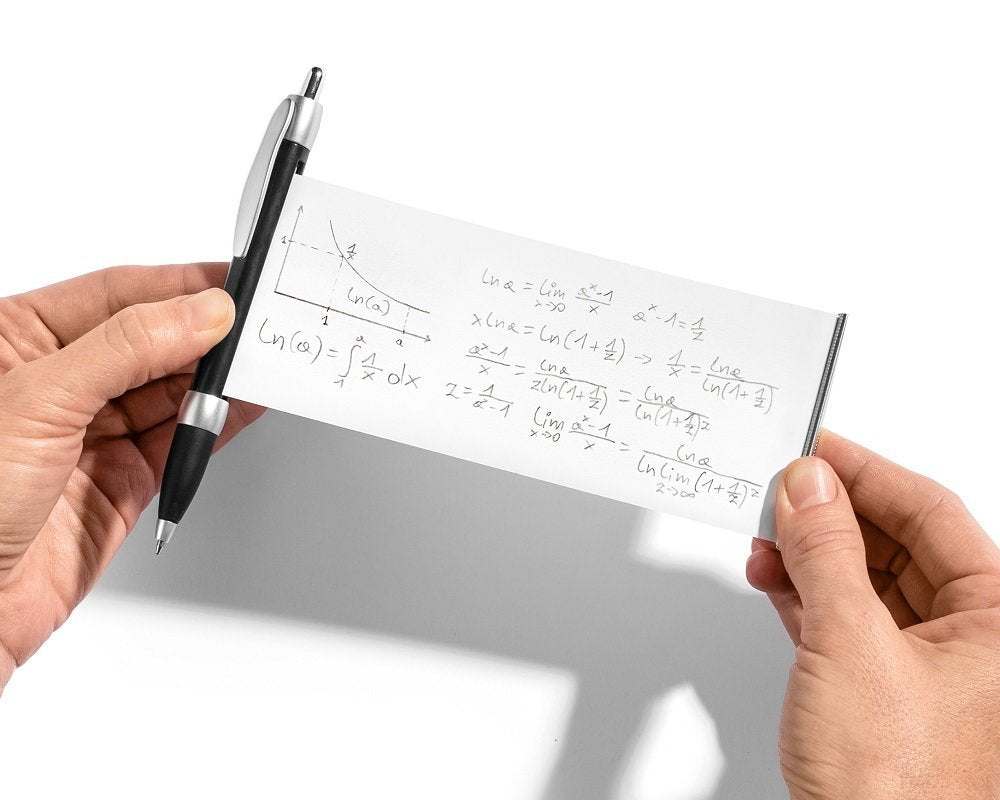 1
1/x
ln(a)
1
a
ln(a) = ∫₁ᵃ 1/x dx
ln a = lim x→0 (aˣ-1)/x
aˣ-1 = 1/z
x ln a = ln(1+1/z) → 1/x = ln a/ln(1+1/z)
(aˣ-1)/x = ln a/(z ln(1+1/z)) = ln a/ln(1+1/z)ᶻ
z = 1/(aˣ-1)
lim x→0 (aˣ-1)/x = ln a/(ln lim z→∞ (1+1/z)ᶻ)